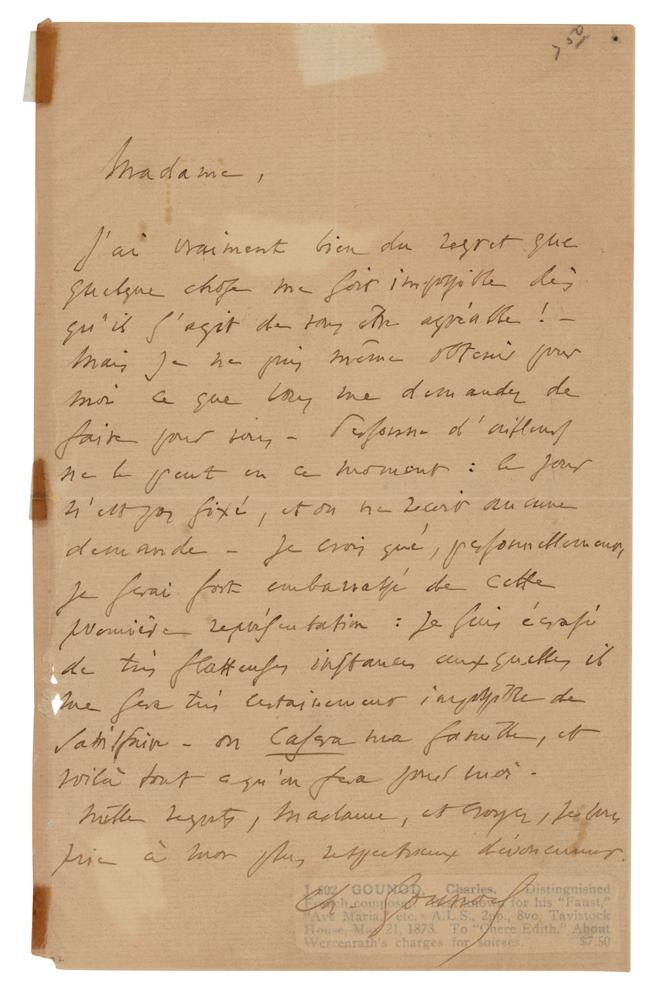 Madame,
J'ai vraiment bien du regret que
quelque chose me soit impossible dès
qu'il s'agit de vous être agréable ! -
Mais je ne puis même obtenir pour
moi ce que vous me demandez de
faire pour vous - Personne d'ailleurs
ne le peut en ce moment : le jour
n'est pas fixé, et on ne reçoit aucune
demande - Je crois que, personnellement,
je serai fort embarrassé de cette
première représentation : je suis écrasé
de très flatteuses instances auxquelles il
me sera très certainement impossible de
satisfaire - on casera ma famille, et
voilà tout ce qu'on fera pour moi -
Mille regrets, Madame, et croyez, je vous
prie à mon plus respectueux dévouement.
Ch. Gounod
J 502 GOUNOD, Charles. Distinguished
French composer for his "Faust,"
"Ave Maria," etc. A.L.S., 2pp., 8vo, Tavistock
House, May 21, 1873. To "Chere Edith." About
Werrenrath's charges for soirees. $7.50